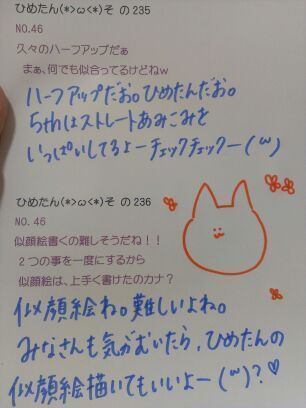 ひめたん(*>ω<*)そ の235
NO.46
久々のハーフアップだぁ
まぁ、何でも似合ってるけどねw
ハーフアップだお。ひめたんだお。
5thはストレートあみこみを
いっぱいしてるよーチェックチェックー(ω)
ひめたん(*>ω<*)そ の236
NO.46
似顔絵書くの難しそうだね!!
2つの事を一度にするから
似顔絵は、上手く書けたのカナ?
似顔絵ね。難しいよね。
みなさんも気がむいたら、ひめたんの
似顔絵描いてもいいよー(ω)?♡